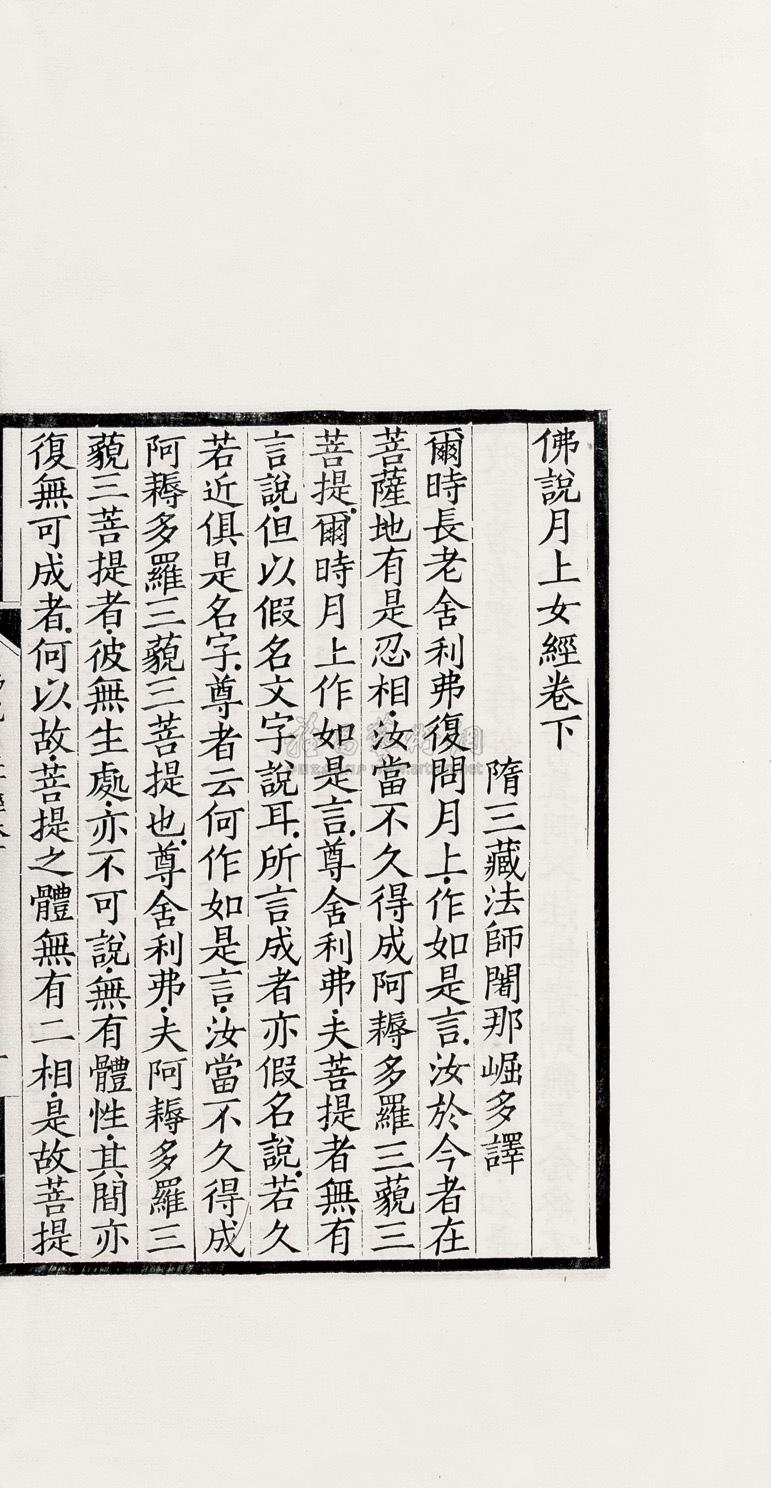 佛說月上女經卷下
隋三藏法師闍那崛多譯
爾時長老舍利弗復問月上.作如是言.汝於今者在
菩薩地有是忍相.汝當不久得成阿耨多羅三藐三
菩提.爾時月上作如是言.尊舍利弗.夫菩提者無有
言說.但以假名文字說耳.所言成者亦假名說.若久
若近俱是名字.尊者云何作如是言.汝當不久得成
阿耨多羅三藐三菩提也.尊舍利弗.夫阿耨多羅三
藐三菩提者.彼無生處.亦不可說.無有體性.其間亦
復無可成者.何以故.菩提之體無有二相.是故菩提